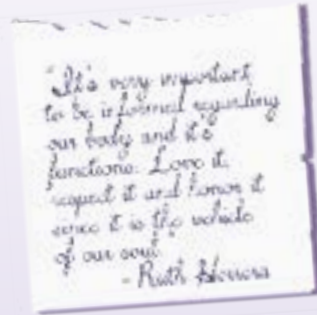 "It's very important
to be informed regarding
our body and it's
functions. Love it,
respect it and honor it
since it is the vehicle
of our soul
- Ruth Herrera